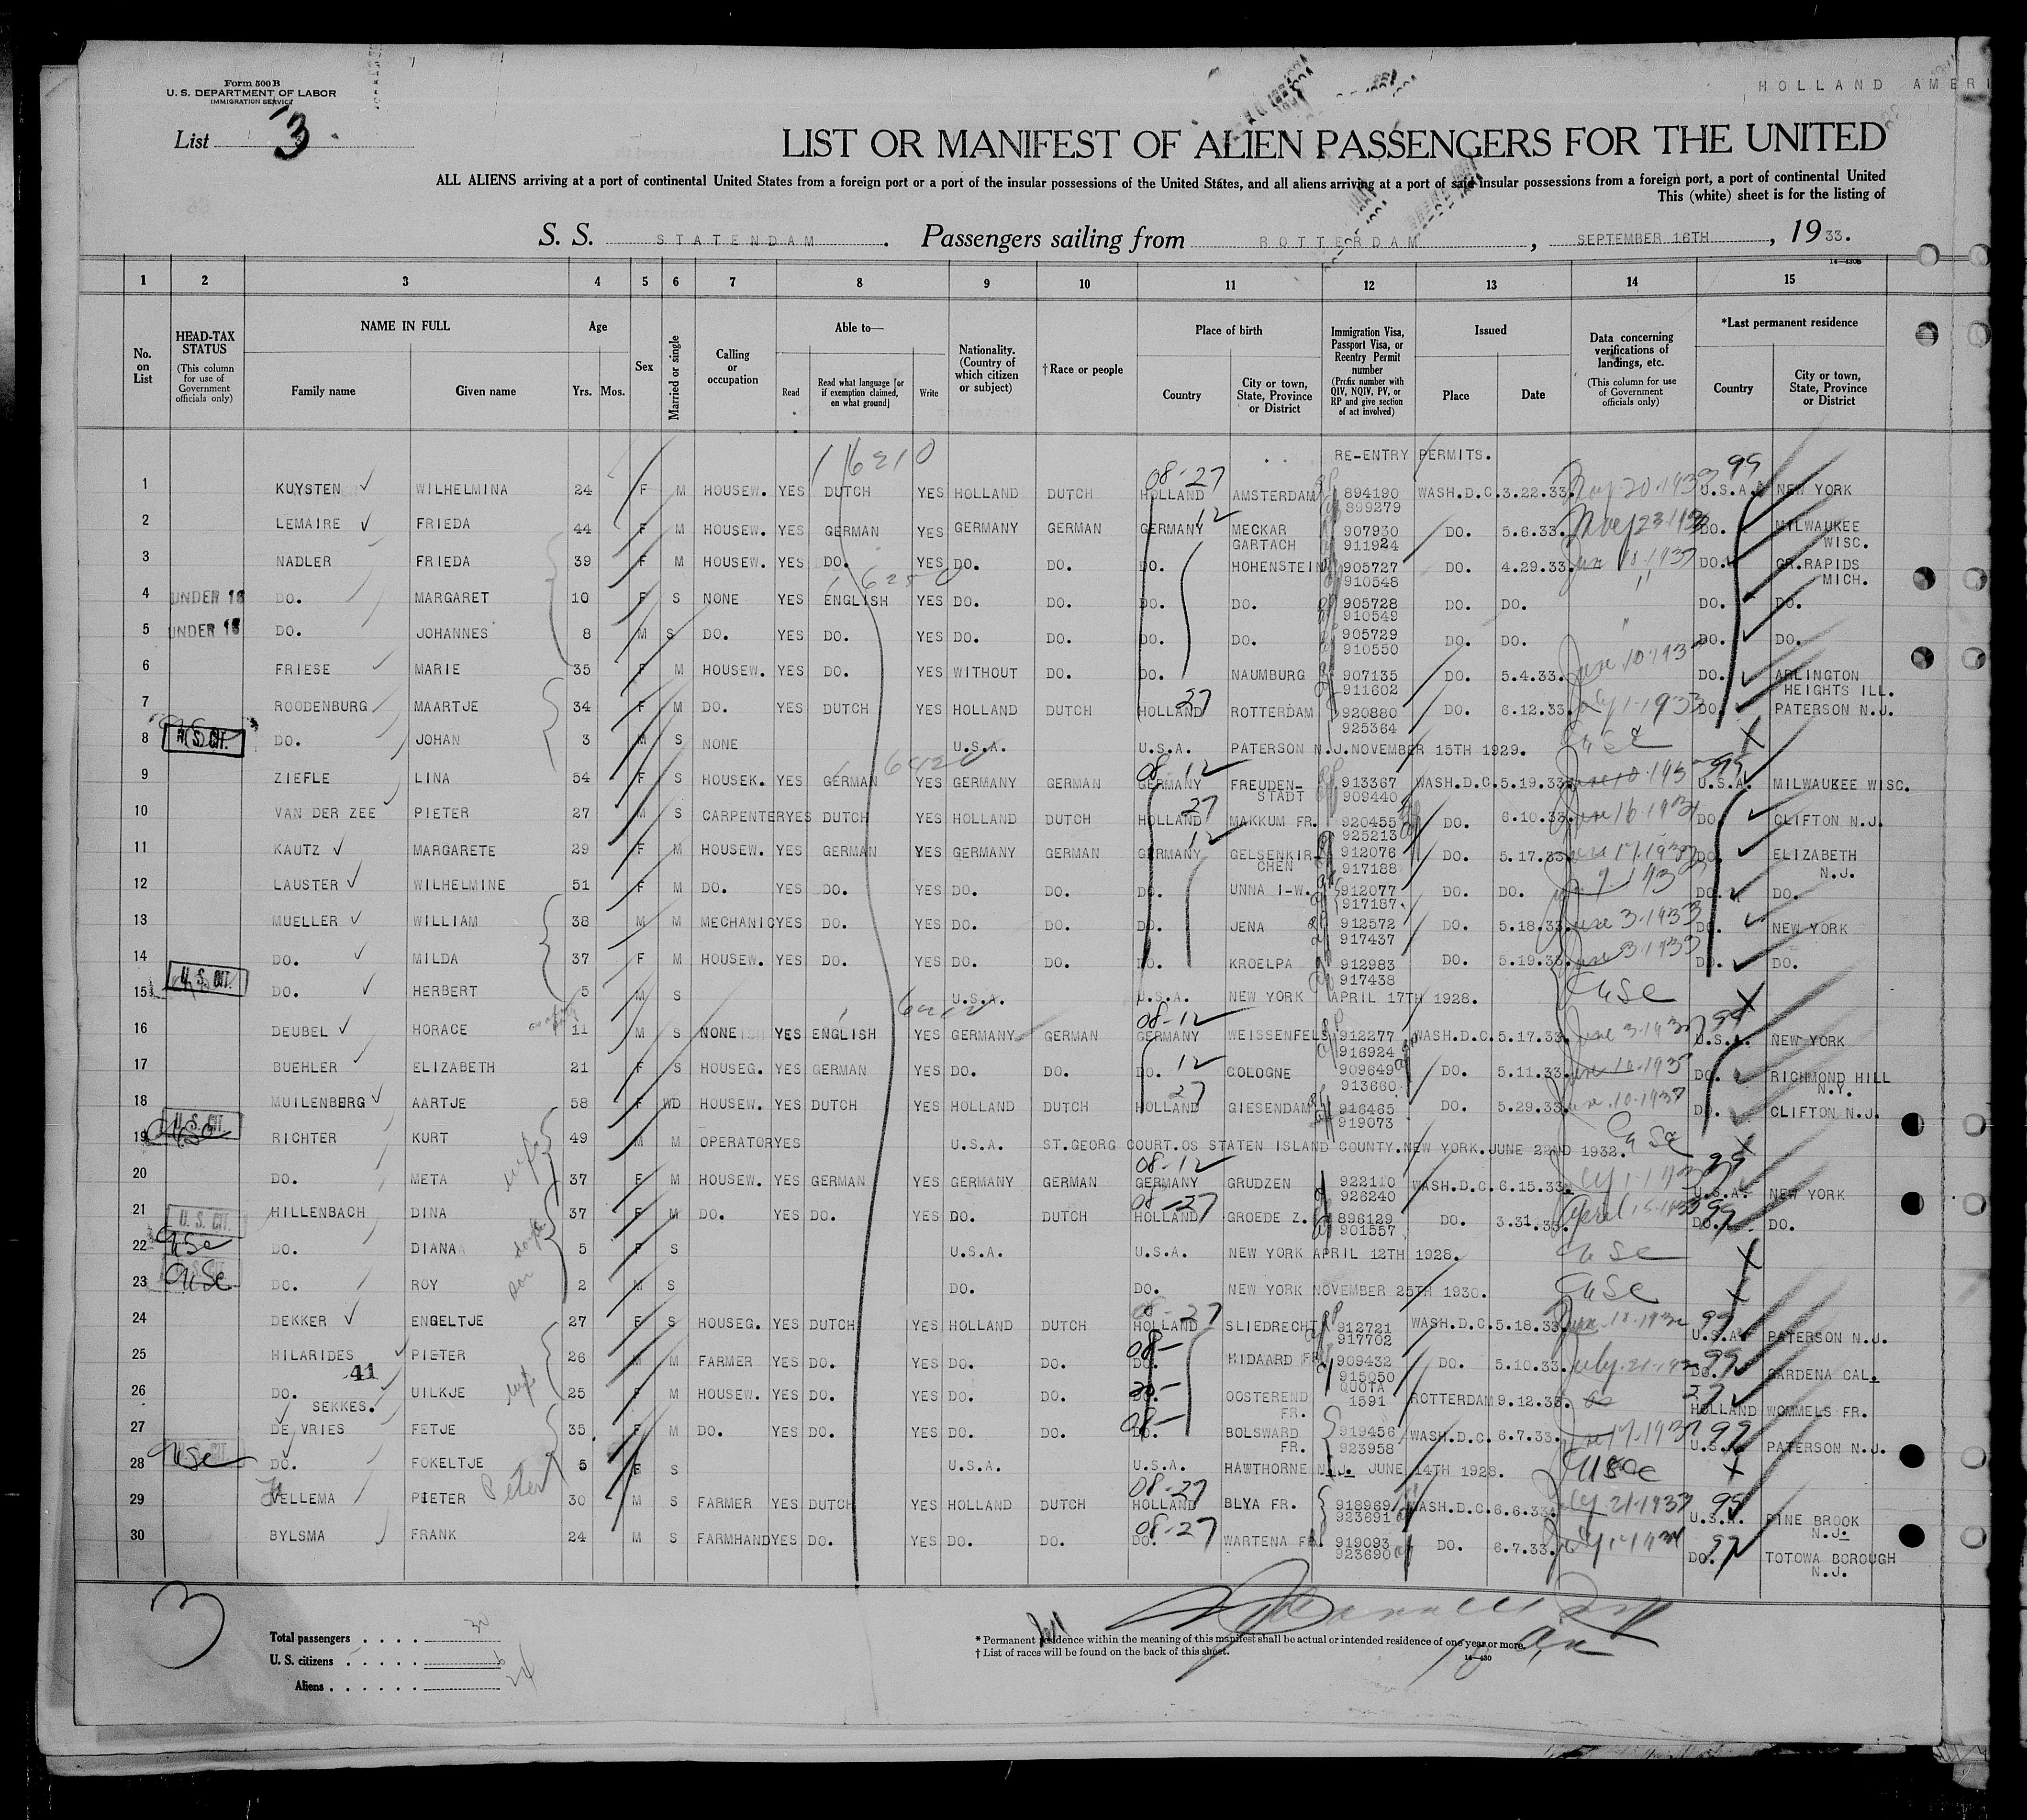 Form 500 B
U. S. DEPARTMENT OF LABOR
IMMIGRATION SERVICE
HOLLAND AMERI
List 3
LIST OR MANIFEST OF ALIEN PASSENGERS FOR THE UNITED
ALL ALIENS arriving at a port of continental United States from a foreign port or a port of the insular possessions of the United States, and all aliens arriving at a port of said insular possessions from a foreign port, a port of continental United
This (white) sheet is for the listing of
S. S. STATENDAM. Passengers sailing from ROTTERDAM, SEPTEMBER 16TH, 1933.
14—430B
1 2 3 4 5 6 7 8 9 10 11 12 13 14 15
No. on List
HEAD-TAX STATUS
(This column for use of Government officials only)
NAME IN FULL
Family name Given name
Age
Yrs. Mos.
Sex
Married or single
Calling or occupation
Able to—
Read
Read what language [or if exemption claimed, on what ground]
Write
Nationality. (Country of which citizen or subject)
† Race or people
Place of birth
Country
City or town, State, Province or District
Immigration Visa, Passport Visa, or Reentry Permit number
(Prefix number with QIV, NQIV, PV, or RP and give section of act involved)
Issued
Place Date
Data concerning verifications of landings, etc.
(This column for use of Government officials only)
*Last permanent residence
Country
City or town, State, Province or District
RE-ENTRY PERMITS.
1 KUYSTEN WILHELMINA 24 F M HOUSEW. YES DUTCH YES HOLLAND DUTCH HOLLAND AMSTERDAM 894190 WASH.D.C. 3.22.33. U.S.A. NEW YORK
899279
2 LEMAIRE FRIEDA 44 F M HOUSEW. YES GERMAN YES GERMANY GERMAN GERMANY MECKAR 907930 DO. 5.6.33. DO. MILWAUKEE
GARTACH 911924 WISC.
3 NADLER FRIEDA 39 F M HOUSEW. YES DO. YES DO. DO. DO. HOHENSTEIN 905727 DO. 4.29.33. DO. GR.RAPIDS
910548 MICH.
4 UNDER 16 DO. MARGARET 10 F S NONE YES ENGLISH YES DO. DO. DO. DO. 905728 DO. DO. DO. DO.
910549
5 UNDER 16 DO. JOHANNES 8 M S DO. YES DO. YES DO. DO. DO. DO. 905729 DO. DO. DO. DO.
910550
6 FRIESE MARIE 35 F M HOUSEW. YES DO. YES WITHOUT DO. DO. NAUMBURG 907135 DO. 5.4.33. DO. ARLINGTON
911602 HEIGHTS ILL.
7 ROODENBURG MAARTJE 34 F M DO. YES DUTCH YES HOLLAND DUTCH HOLLAND ROTTERDAM 920880 DO. 6.12.33. DO. PATERSON N.J.
925364
8 U. S. CIT. DO. JOHAN 3 M S NONE U.S.A. U.S.A. PATERSON N.J. NOVEMBER 15TH 1929. USC X
9 ZIEFLE LINA 54 F S HOUSEK. YES GERMAN YES GERMANY GERMAN GERMANY FREUDEN- 913367 WASH.D.C. 5.19.33. U.S.A. MILWAUKEE WISC.
STADT 909440
10 VAN DER ZEE PIETER 27 M S CARPENTER YES DUTCH YES HOLLAND DUTCH HOLLAND MAKKUM FR. 920455 DO. 6.10.33. DO. CLIFTON N.J.
925213
11 KAUTZ MARGARETE 29 F M HOUSEW. YES GERMAN YES GERMANY GERMAN GERMANY GELSENKIR- 912076 DO. 5.17.33. DO. ELIZABETH
CHEN 917188 N.J.
12 LAUSTER WILHELMINE 51 F M DO. YES DO. YES DO. DO. DO. UNNA I-W. 912077 DO. DO. DO. DO.
917187.
13 MUELLER WILLIAM 38 M M MECHANIC YES DO. YES DO. DO. DO. JENA 912572 DO. 5.18.33. DO. NEW YORK
917437
14 DO. MILDA 37 F M HOUSEW. YES DO. YES DO. DO. DO. KROELPA 912983 DO. 5.19.33. DO. DO.
917438
15 U. S. CIT. DO. HERBERT 5 M S U.S.A. U.S.A. NEW YORK APRIL 17TH 1928. USC X
16 DEUBEL HORACE 11 M S NONE YES ENGLISH YES GERMANY GERMAN GERMANY WEISSENFELS 912277 WASH.D.C. 5.17.33. U.S.A. NEW YORK
916924
17 BUEHLER ELIZABETH 21 F S HOUSEG. YES GERMAN YES DO. DO. DO. COLOGNE 909649 DO. 5.11.33. DO. RICHMOND HILL
913660 N.Y.
18 MUILENBERG AARTJE 58 F WD HOUSEW. YES DUTCH YES HOLLAND DUTCH HOLLAND GIESENDAM 916465 DO. 5.29.33. DO. CLIFTON N.J.
919073
19 U. S. CIT. RICHTER KURT 49 M M OPERATOR YES U.S.A. ST.GEORG COURT.OS STATEN ISLAND COUNTY.NEW YORK.JUNE 22ND 1932. USC X
20 DO. META 37 F M HOUSEW. YES GERMAN YES GERMANY GERMAN GERMANY GRUDZEN 922110 WASH.D.C. 6.15.33. U.S.A. NEW YORK
926240
21 HILLENBACH DINA 37 F M DO. YES DO. YES DO. DUTCH HOLLAND GROEDE Z. 896129 DO. 3.31.33. DO. DO.
901557
22 U. S. CIT. USC DO. DIANA 5 F S U.S.A. U.S.A. NEW YORK APRIL 12TH 1928. USC X
23 USC DO. ROY 2 M S DO. DO. NEW YORK NOVEMBER 25TH 1930. USC X
24 DEKKER ENGELTJE 27 F S HOUSEG. YES DUTCH YES HOLLAND DUTCH HOLLAND SLIEDRECHT 912721 WASH.D.C. 5.18.33. U.S.A. PATERSON N.J.
917702
25 HILARIDES PIETER 26 M M FARMER YES DO. YES DO. DO. DO. HIDAARD FR. 909432 DO. 5.10.33. DO. GARDENA CAL.
41 915050
26 DO. UILKJE 25 F M HOUSEW. YES DO. YES DO. DO. DO. OOSTEREND QUOTA 1591 ROTTERDAM 9.12.33. HOLLAND WOMMELS FR.
SEKKES. FR.
27 DE VRIES FETJE 35 F M DO. YES DO. YES DO. DO. DO. BOLSWARD 919456 WASH.D.C. 6.7.33. U.S.A. PATERSON N.J.
FR. 923958
28 USC DO. FOKELTJE 5 F S U.S.A. U.S.A. HAWTHORNE N.J. JUNE 14TH 1928. X
29 VELLEMA PIETER Peter 30 M S FARMER YES DUTCH YES HOLLAND DUTCH HOLLAND BLYA FR. 918969 WASH.D.C. 6.6.33. U.S.A. PINE BROOK
923691 N.J.
30 BYLSMA FRANK 24 M S FARMHAND YES DO. YES DO. DO. DO. WARTENA FR. 919093 DO. 6.7.33. DO. TOTOWA BOROUGH
923690 N.J.
3
Total passengers 30
U. S. citizens 6
Aliens 24
* Permanent residence within the meaning of this manifest shall be actual or intended residence of one year or more.
† List of races will be found on the back of this sheet.
14—430